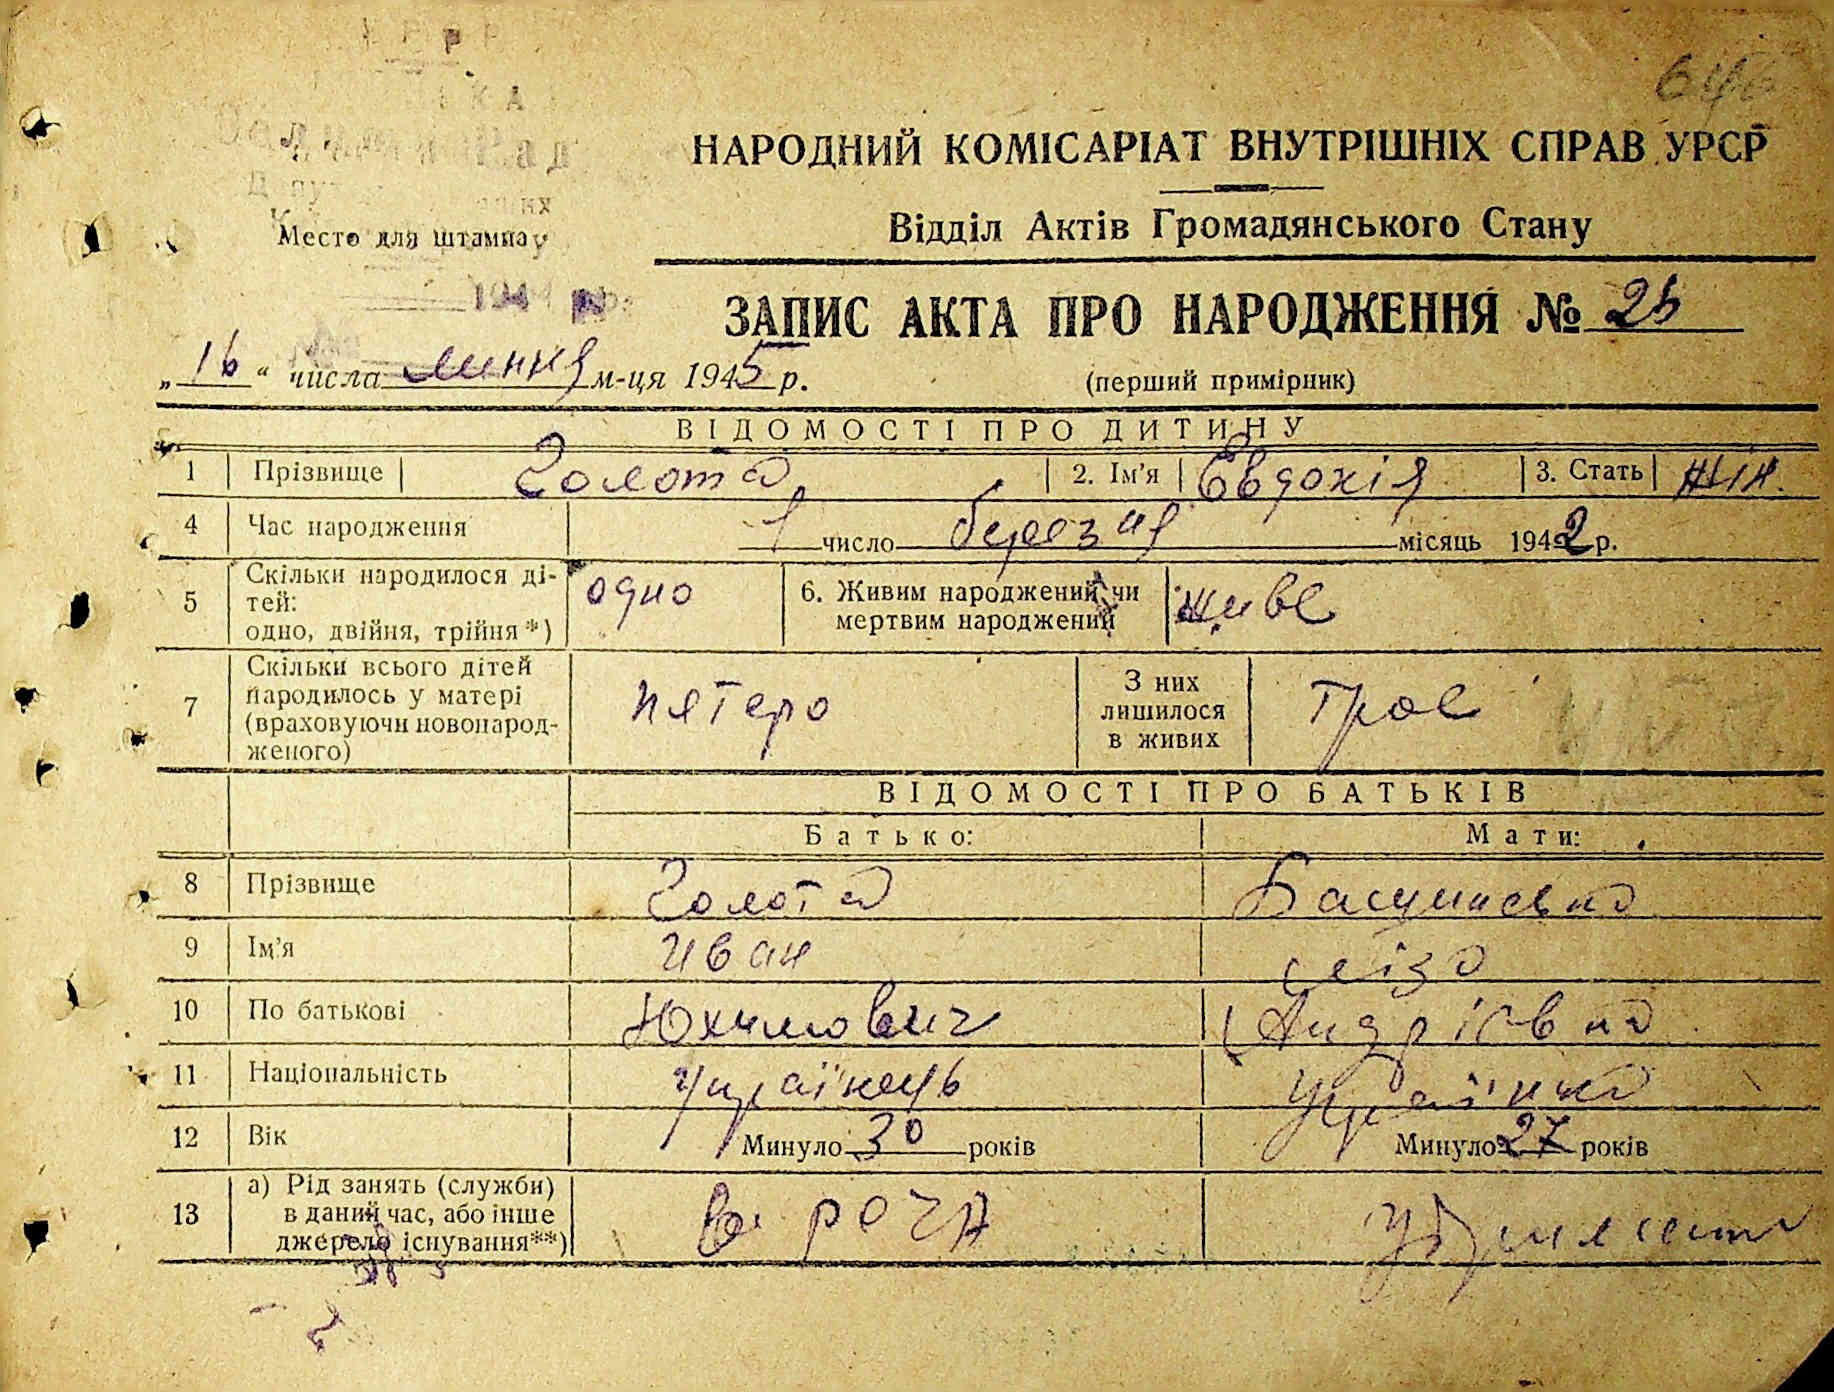 НАРОДНИЙ КОМІСАРІАТ ВНУТРІШНІХ СПРАВ УРСР
Відділ Актів Громадянського Стану
Место для штампа
ЗАПИС АКТА ПРО НАРОДЖЕННЯ №
„16“ числа липня м-ця 1945 р.
(перший примірник)
ВІДОМОСТІ ПРО ДИТИНУ
1 Прізвище Голота 2. Ім'я Євдокія 3. Стать жін.
4 Час народження 1 число березня місяць 1942 р.
5 Скільки народилося ді-
тей:
одно, двійня, трійня*) одно 6. Живим народжений чи
мертвим народжений живе
7 Скільки всього дітей
народилось у матері
(враховуючи новонарод-
женого) пятеро З них
лишилося
в живих троє
ВІДОМОСТІ ПРО БАТЬКІВ
Батько: Мати:
8 Прізвище Голота
9 Ім'я Иван Ліза
10 По батькові Юхимович Андріївна
11 Національність Українець Українка
12 Вік Минуло 30 років Минуло 27 років
13 а) Рід занять (служби)
в даний час, або інше
джерело існування**)